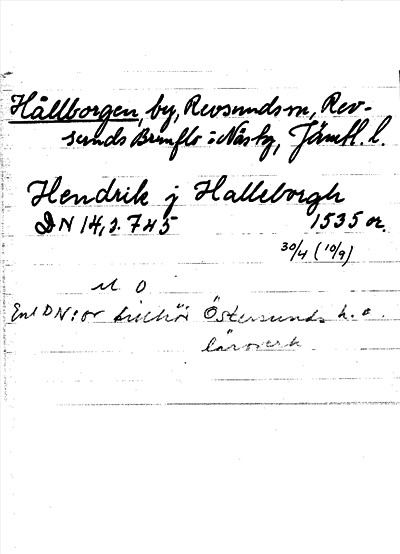 Hållborgen, by, Revsunds sn, Rev-
sunds Brunflo o Näs tg, Jämtl. l.
Hendrik j Halleborgh
DN 14, s. 745 1535 or.
30/4 (10/9)
U. O
Enl DN: or tillhör Östersunds h. a.
läroverk